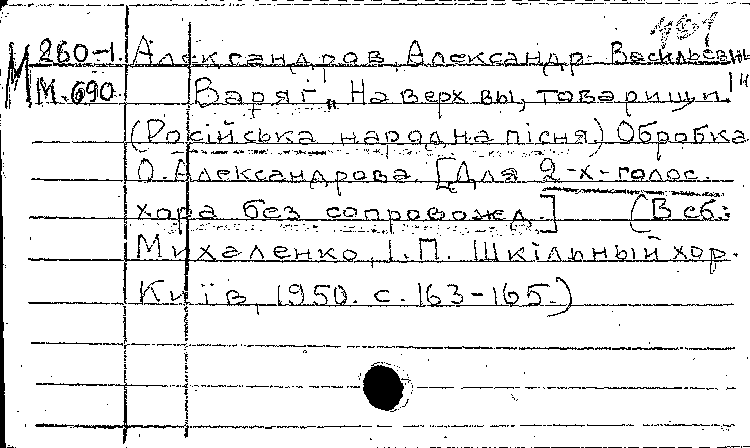 481
М 260-1. Александров, Александр Васильевич
М.690. Варяг „На верх вы, товарищи!"
(Російська народна пісня.) Обробка
О.Александрова. [Для 2-х-голос.
хора без сопровожд.] (В сб.:
Михаленко, І.П. Шкільный хор.
Київ, 1950. с. 163-165.)